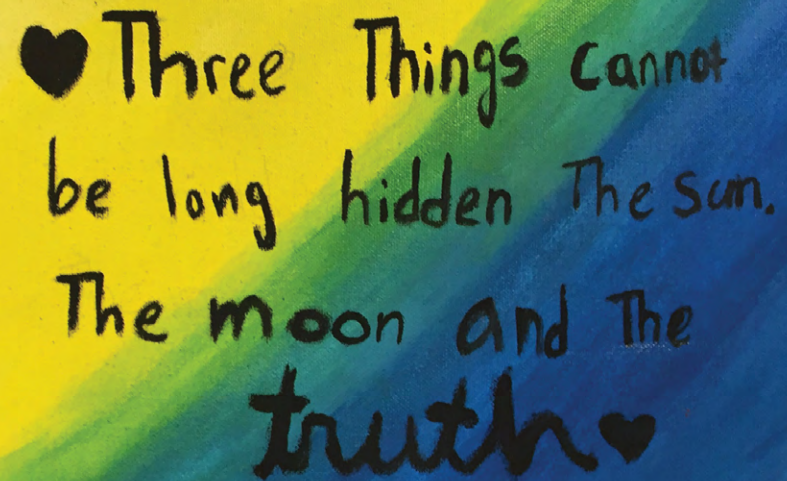 ♥ Three Things cannot
be long hidden The sun.
The moon and The
truth ♥